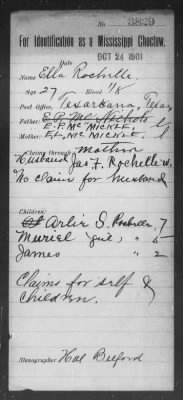 No. 3829
For Identification as a Mississippi Choctaw.
OCT 24 1901
Date
Name Ella Rochelle.
Age 27 Blood 1/8
Post Office, Texarkana, Texas
Father: E.P. Mc Nichols
E.P. McMICKLE.
Mother: McMICKLE.
Claiming through mother
Husband Jas F. Rochelle
No claim for husband
Children:
Arlie S. Rochelle. 7
Muriel (girl) " 5
James " 2
Claims for self &
children.
Stenographer Hal Belford